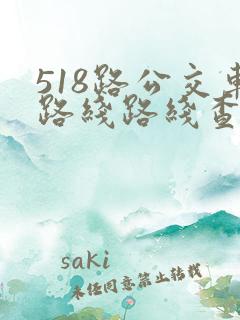 518路公交車
路綫路綫查
saki
未经同意禁止转载